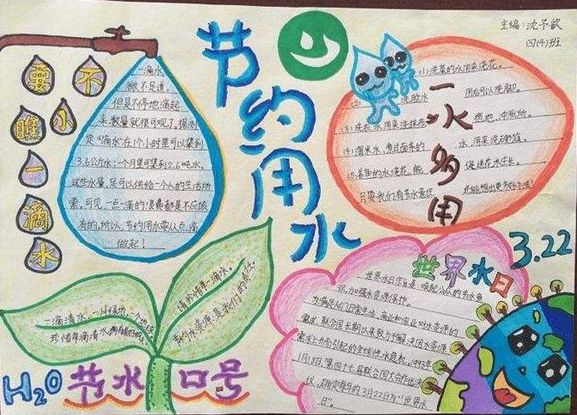 主编:沈予歆
四(4)班
节约用水
不要小瞧一滴水
一滴水,
微不足道。
但是不停地滴起
来,数量就很可观了。据测
定“滴水”在1个小时里可以集到
3.6公斤水;1个月里可集到2.6吨水。
这些水量,足可以供给一个人的生活所
需。可见,一点一滴的浪费都是不应该
有的。所以,节约用水要从点滴
做起!
一水多用
(1)洗菜的水用来浇花。
(2)洗脸水用后可以洗脚。
(3)
(4)淘米水、煮过面条的水,用来洗碗筷。
(5)养鱼的水浇花,能促进花木生长。
只要我们有节水意识,
3.22
世界水日
世界水日宗旨是:唤起公众的节水意
识,加强水资源保护。
为满足人们日常生活、商业和农业对水资源的
需求,联合国长期以来致力于解决因水资源
需求上升而引起的全球性水危机。1993年
1月18日,第四十七届联合国大会作出决
议,确定每年的3月22日为“世界水
日”。
一滴清水,一片绿地,一个地球
珍惜每滴清水
请珍惜每一滴水。
节约水资源,是我们的责任。
H2O 节水口号